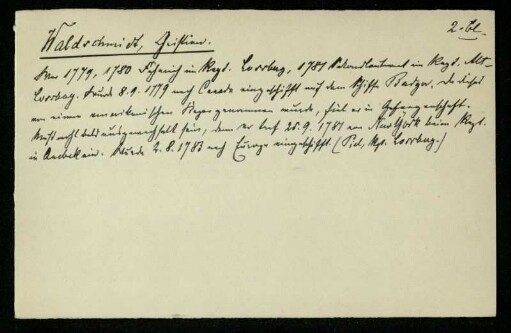 2. Bl.
Waldschmidt, Christian.
War 1779, 1780 Fähnrich im Regt. Lossberg, 1781 Sekondleutnant im Regt. Alt-
Lossberg. Wurde 8.9.1779 nach Canada eingeschifft auf dem Schiffe Badger. Da dieses
von einem amerikanischen genommen wurde, fiel er in Gefangenschaft.
Muß wohl bald ausgewechselt sein, denn er traf 25.9.1781 von New York beim Regt.
in Quebec ein. Wurde 2.8.1783 nach Europa eingeschifft. (Regt. Lossberg.)